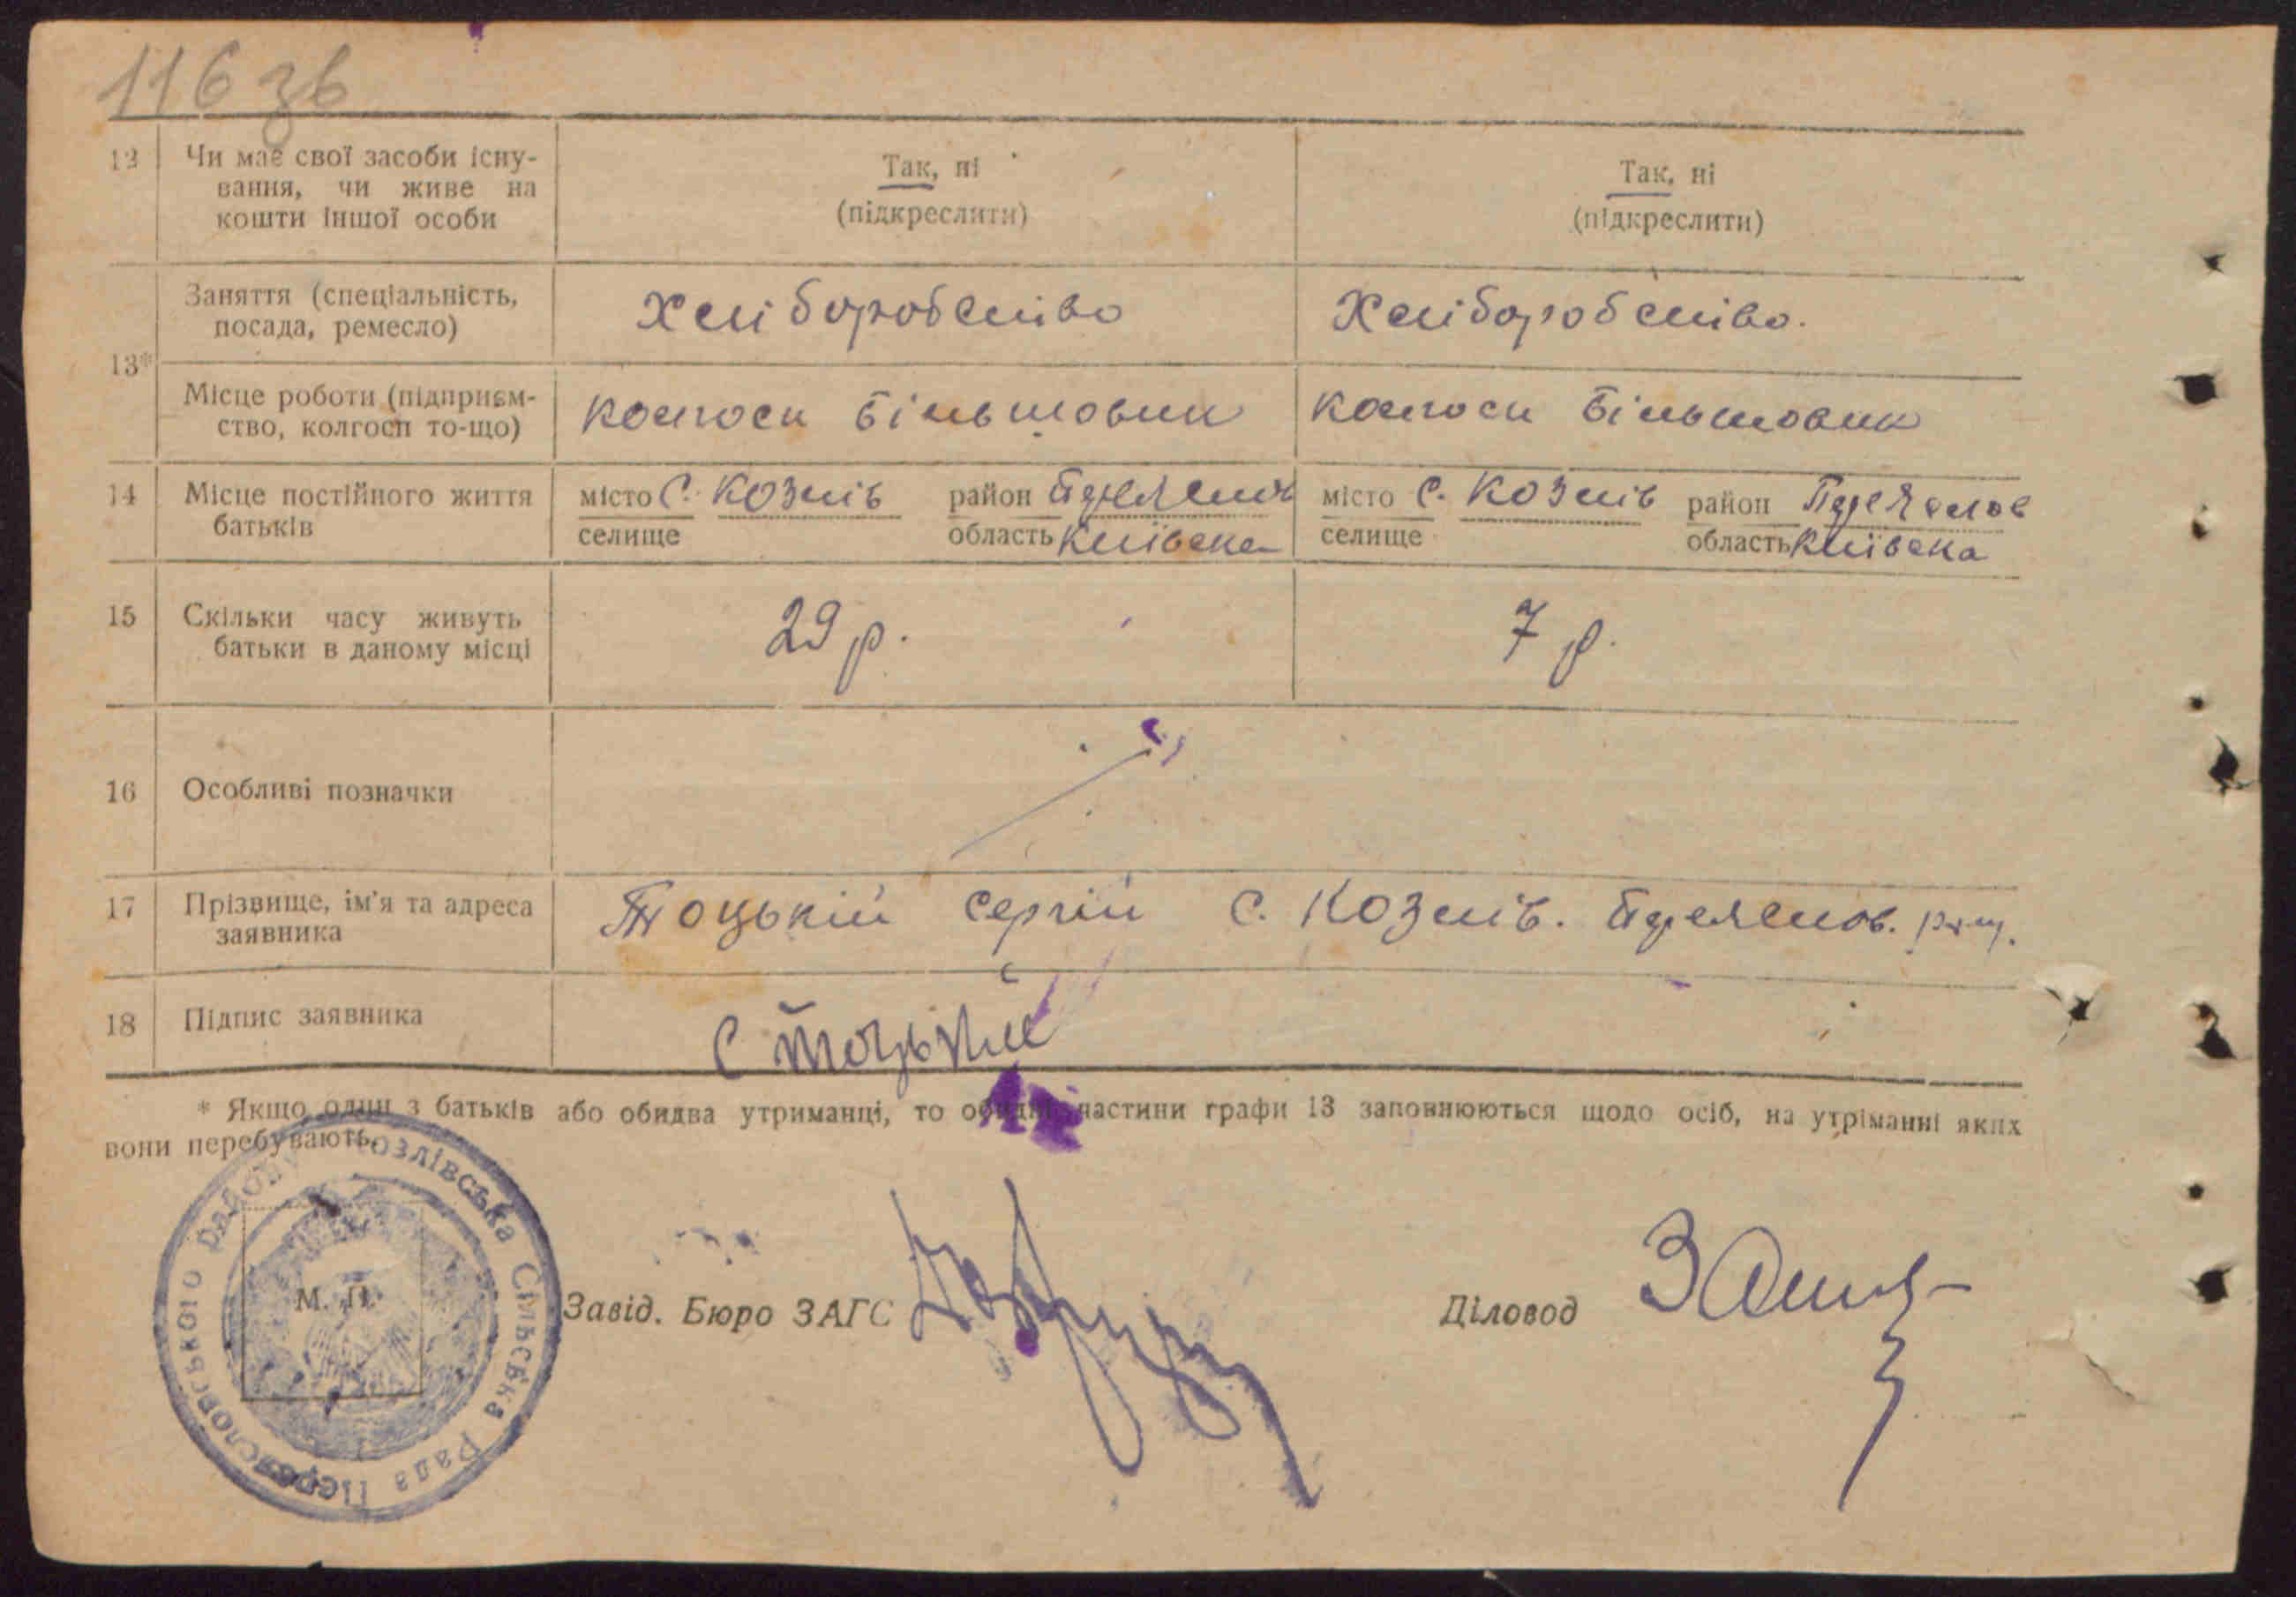 116 зв
12 Чи має свої засоби існу-
вання, чи живе на
кошти іншої особи
Так, ні
(підкреслити)
Так, ні
(підкреслити)
13*
Заняття (спеціальність,
посада, ремесло)
Хліборобство
Хліборобство.
Місце роботи (підприєм-
ство, колгосп то-що)
колгосп Більшовик
колгосп Більшовик
14 Місце постійного життя
батьків
місто С. Козлів район
селище область Київська
місто С. Козлів район Переяслов
селище область Київська
15 Скільки часу живуть
батьки в даному місці
29 р.
7 р.
16 Особливі позначки
17 Прізвище, ім'я та адреса
заявника
Тоцькій Сергій С. Козлів. Переяслов.
18 Підпис заявника
С Тоцький
* Якщо один з батьків або обидва утриманці, то обидві частини графи 13 заповнюються щодо осіб, на утріманні яких
вони перебувають.
Козлівська Сільська Рада Переясловського району
М. П.
Завід. Бюро ЗАГС
Діловод